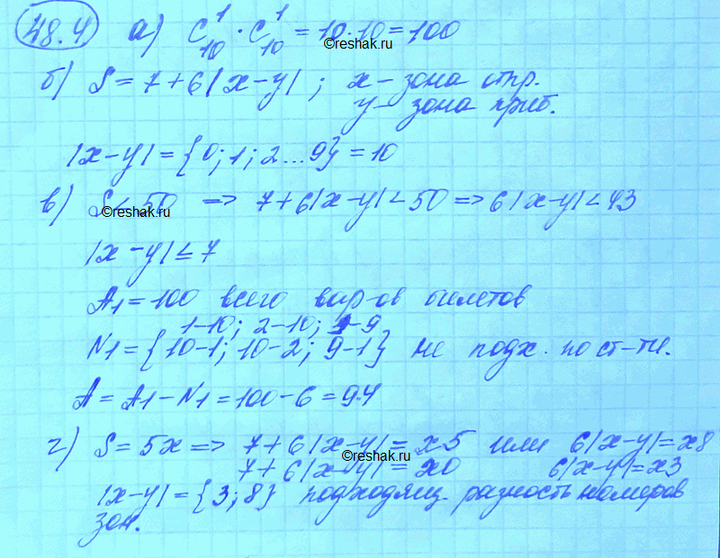 48.4 а) C¹₁₀ · C¹₁₀ = 10·10 = 100
©reshak.ru
б) S = 7 + 6|x-y| ; x - зона отпр.
y - зона приб.
|x-y| = {0; 1; 2 ... 9} = 10
в) S < 50 => 7+6|x-y| < 50 => 6|x-y| < 43
©reshak.ru
|x-y| ≤ 7
A1 = 100 всего вар-ов билетов
1-10; 2-10; 1-9
N1 = {10-1; 10-2; 9-1} не подх. по ст-ти.
A = A1 - N1 = 100 - 6 = 94
г) S = 5x => 7+6|x-y| = x5 или 6|x-y| = x8
©reshak.ru
7+6|x-y| = x0 6|x-y| = x3
|x-y| = {3; 8} подходящ. разность номеров
зон.